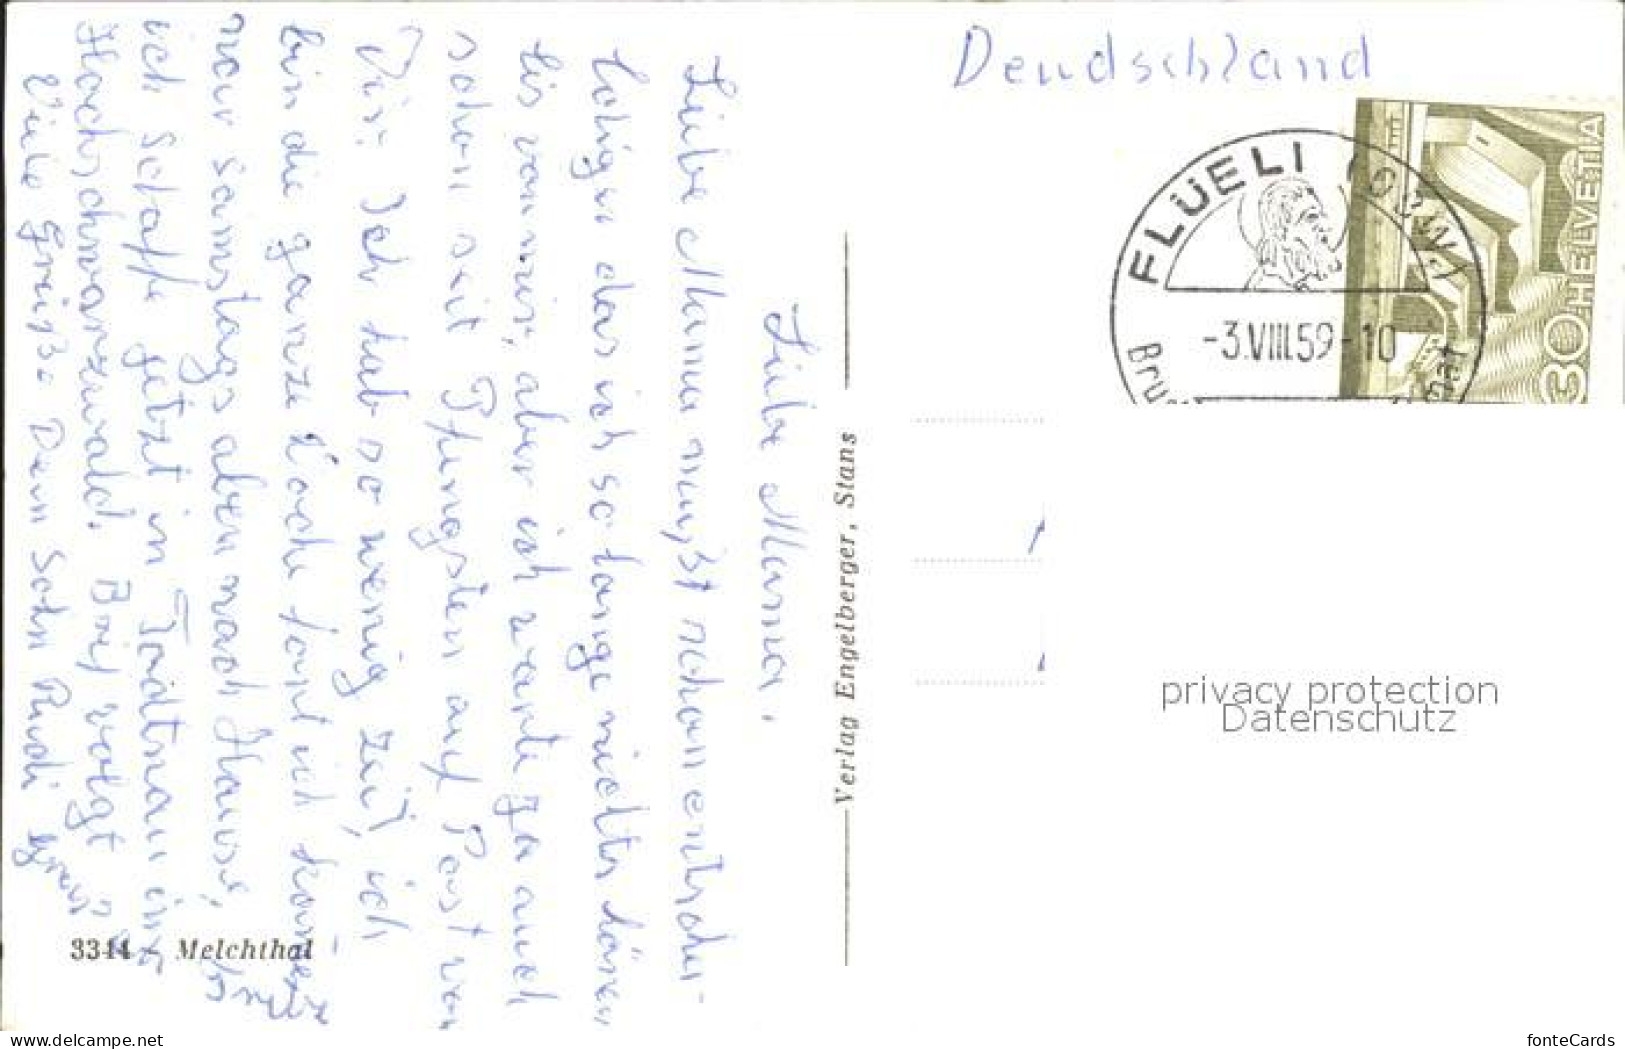 Deudschland
FLÜELI (OBW.)
-3.VIII.59-10
Bru
HELVETIA
30
Verlag Engelberger, Stans
Liebe Mama,
Liebe Mama mußt schon entschul-
tigen das ich so lange nichts hören
lis von mir, aber ich warte ja auch
schon seit Pfingsten auf Post von
Dir. Ich hab so wenig Zeit, ich
bin die ganze Woche fort ich komme
nur samstags aben nach Hause,
ich schaffe jetzt in Todtnau im
Hochschwarzwald. Brif volgt
Viele Grüße Dein Sohn Rudi
3344 Melchthal
privacy protection
Datenschutz
www.delcampe.net
fonteCards